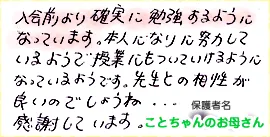 入会前より確実に勉強するように
なっています。本人になりに努力して
いるようで授業にもついていけるように
なっているようです。先生との相性が
良いのでしょうね・・・
保護者名
感謝しています。ことちゃんのお母さん